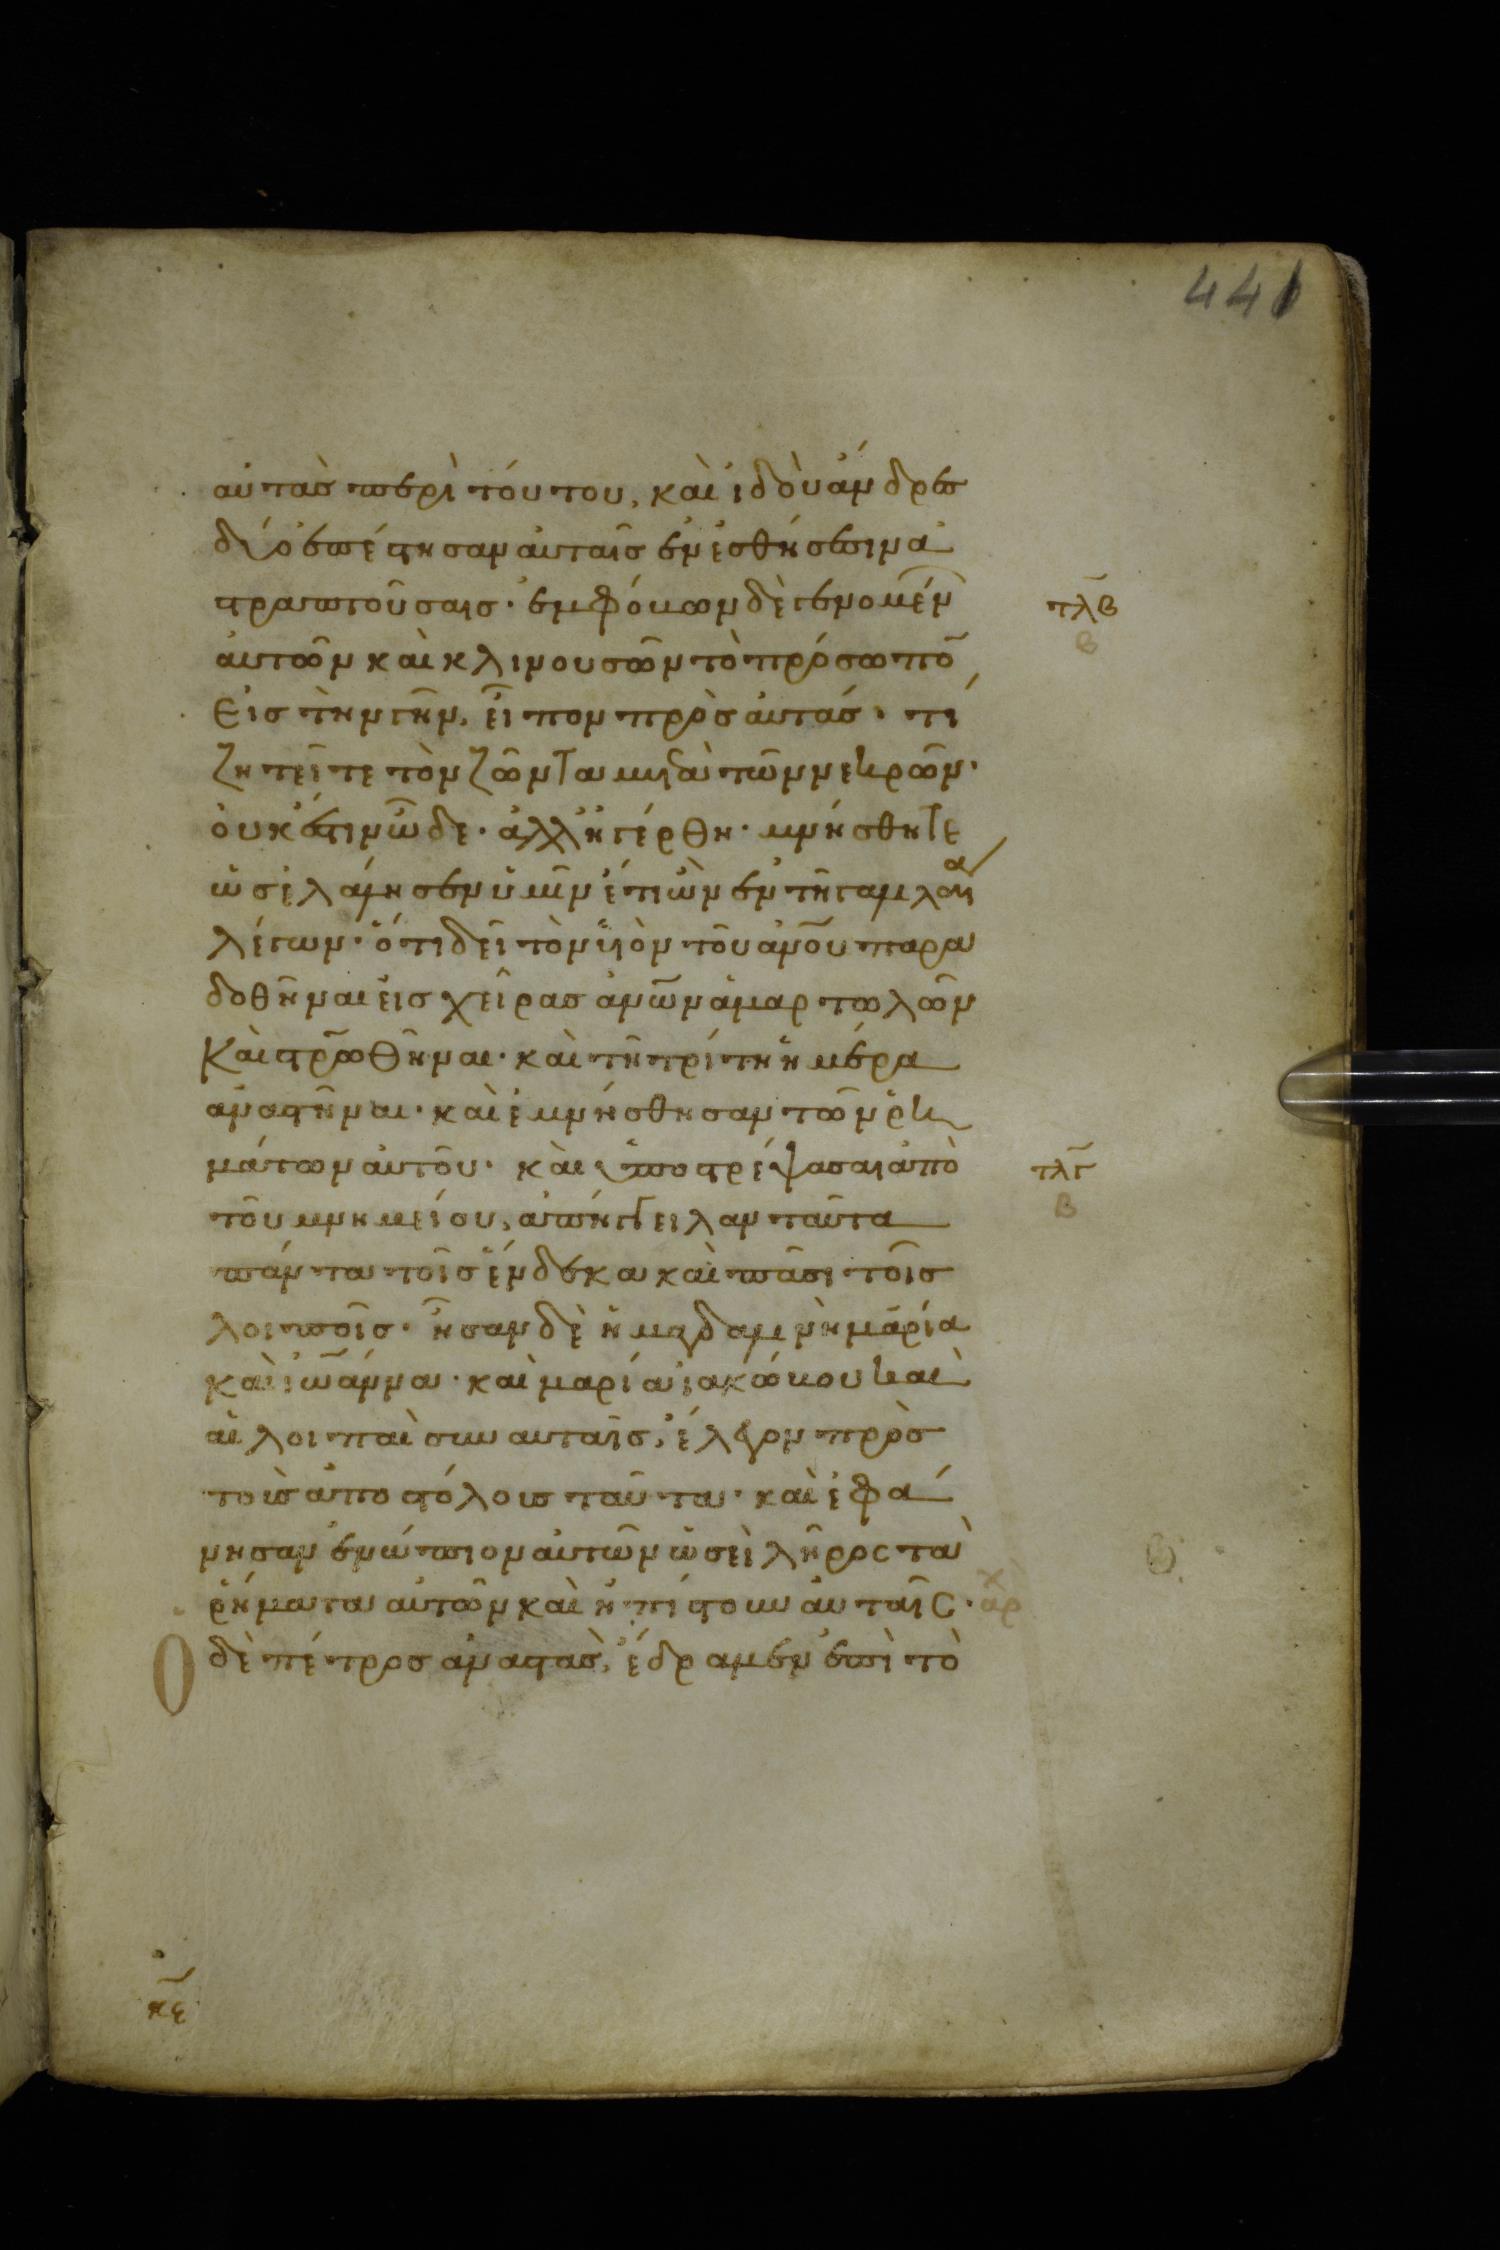 441
αὐτὰς περὶ τούτου, καὶ ἰδοὺ ἄνδρες
δύο ἐπέστησαν αὐταῖς ἐν ἐσθήσεσιν ἀ
στραπτούσαις· ἐμφόβων δὲ γενομέν
αὐτῶν καὶ κλινουσῶν τὸ πρόσωπο̄
εἰς τὴν γῆν, εἶπον πρὸς αὐτάς· τί
ζητεῖτε τὸν ζῶντα μετὰ τῶν νεκρῶν·
οὐκ ἔστιν ὧδε· ἀλλ' ἠγέρθη· μνήσθητε
ὡς ἐλάλησεν ὑμῖν ἔτι ὢν ἐν τῆ γαλιλαία
λέγων· ὅτι δεῖ τὸν υἱὸν τοῦ ἀν̅ου παρα
δοθῆναι εἰς χεῖρας ἀν̅ων ἁμαρτωλῶν
καὶ στρ̅ωθῆναι· καὶ τῆ τρίτη ἡμέρα
ἀναστῆναι· καὶ ἐμνήσθησαν τῶν ῥη
μάτων αὐτοῦ· καὶ ὑποστρέψασαι ἀπὸ
τοῦ μνημείου, ἀπήγγειλαν ταῦτα
πάντα τοῖς ἕνδεκα καὶ πᾶσι τοῖς
λοιποῖς· ἦσαν δὲ ἡ μαγδαληνὴ μαρία
καὶ ἰωάννα· καὶ μαρία ἰακώβου καὶ
αἱ λοιπαὶ σὺν αὐταῖς, ἔλεγον πρὸς
τοὺς ἀποστόλους ταῦτα· καὶ ἐφά
νησαν ἐνώπιον αὐτῶν ὡσεὶ λῆρος τὰ
ῥήματα αὐτῶν καὶ ἠπίστουν αὐταῖς· αρχ
Ὁ δὲ πέτρος ἀναστὰς, ἔδραμεν ἐπὶ τὸ
τλβ
β
τλγ
β
κε